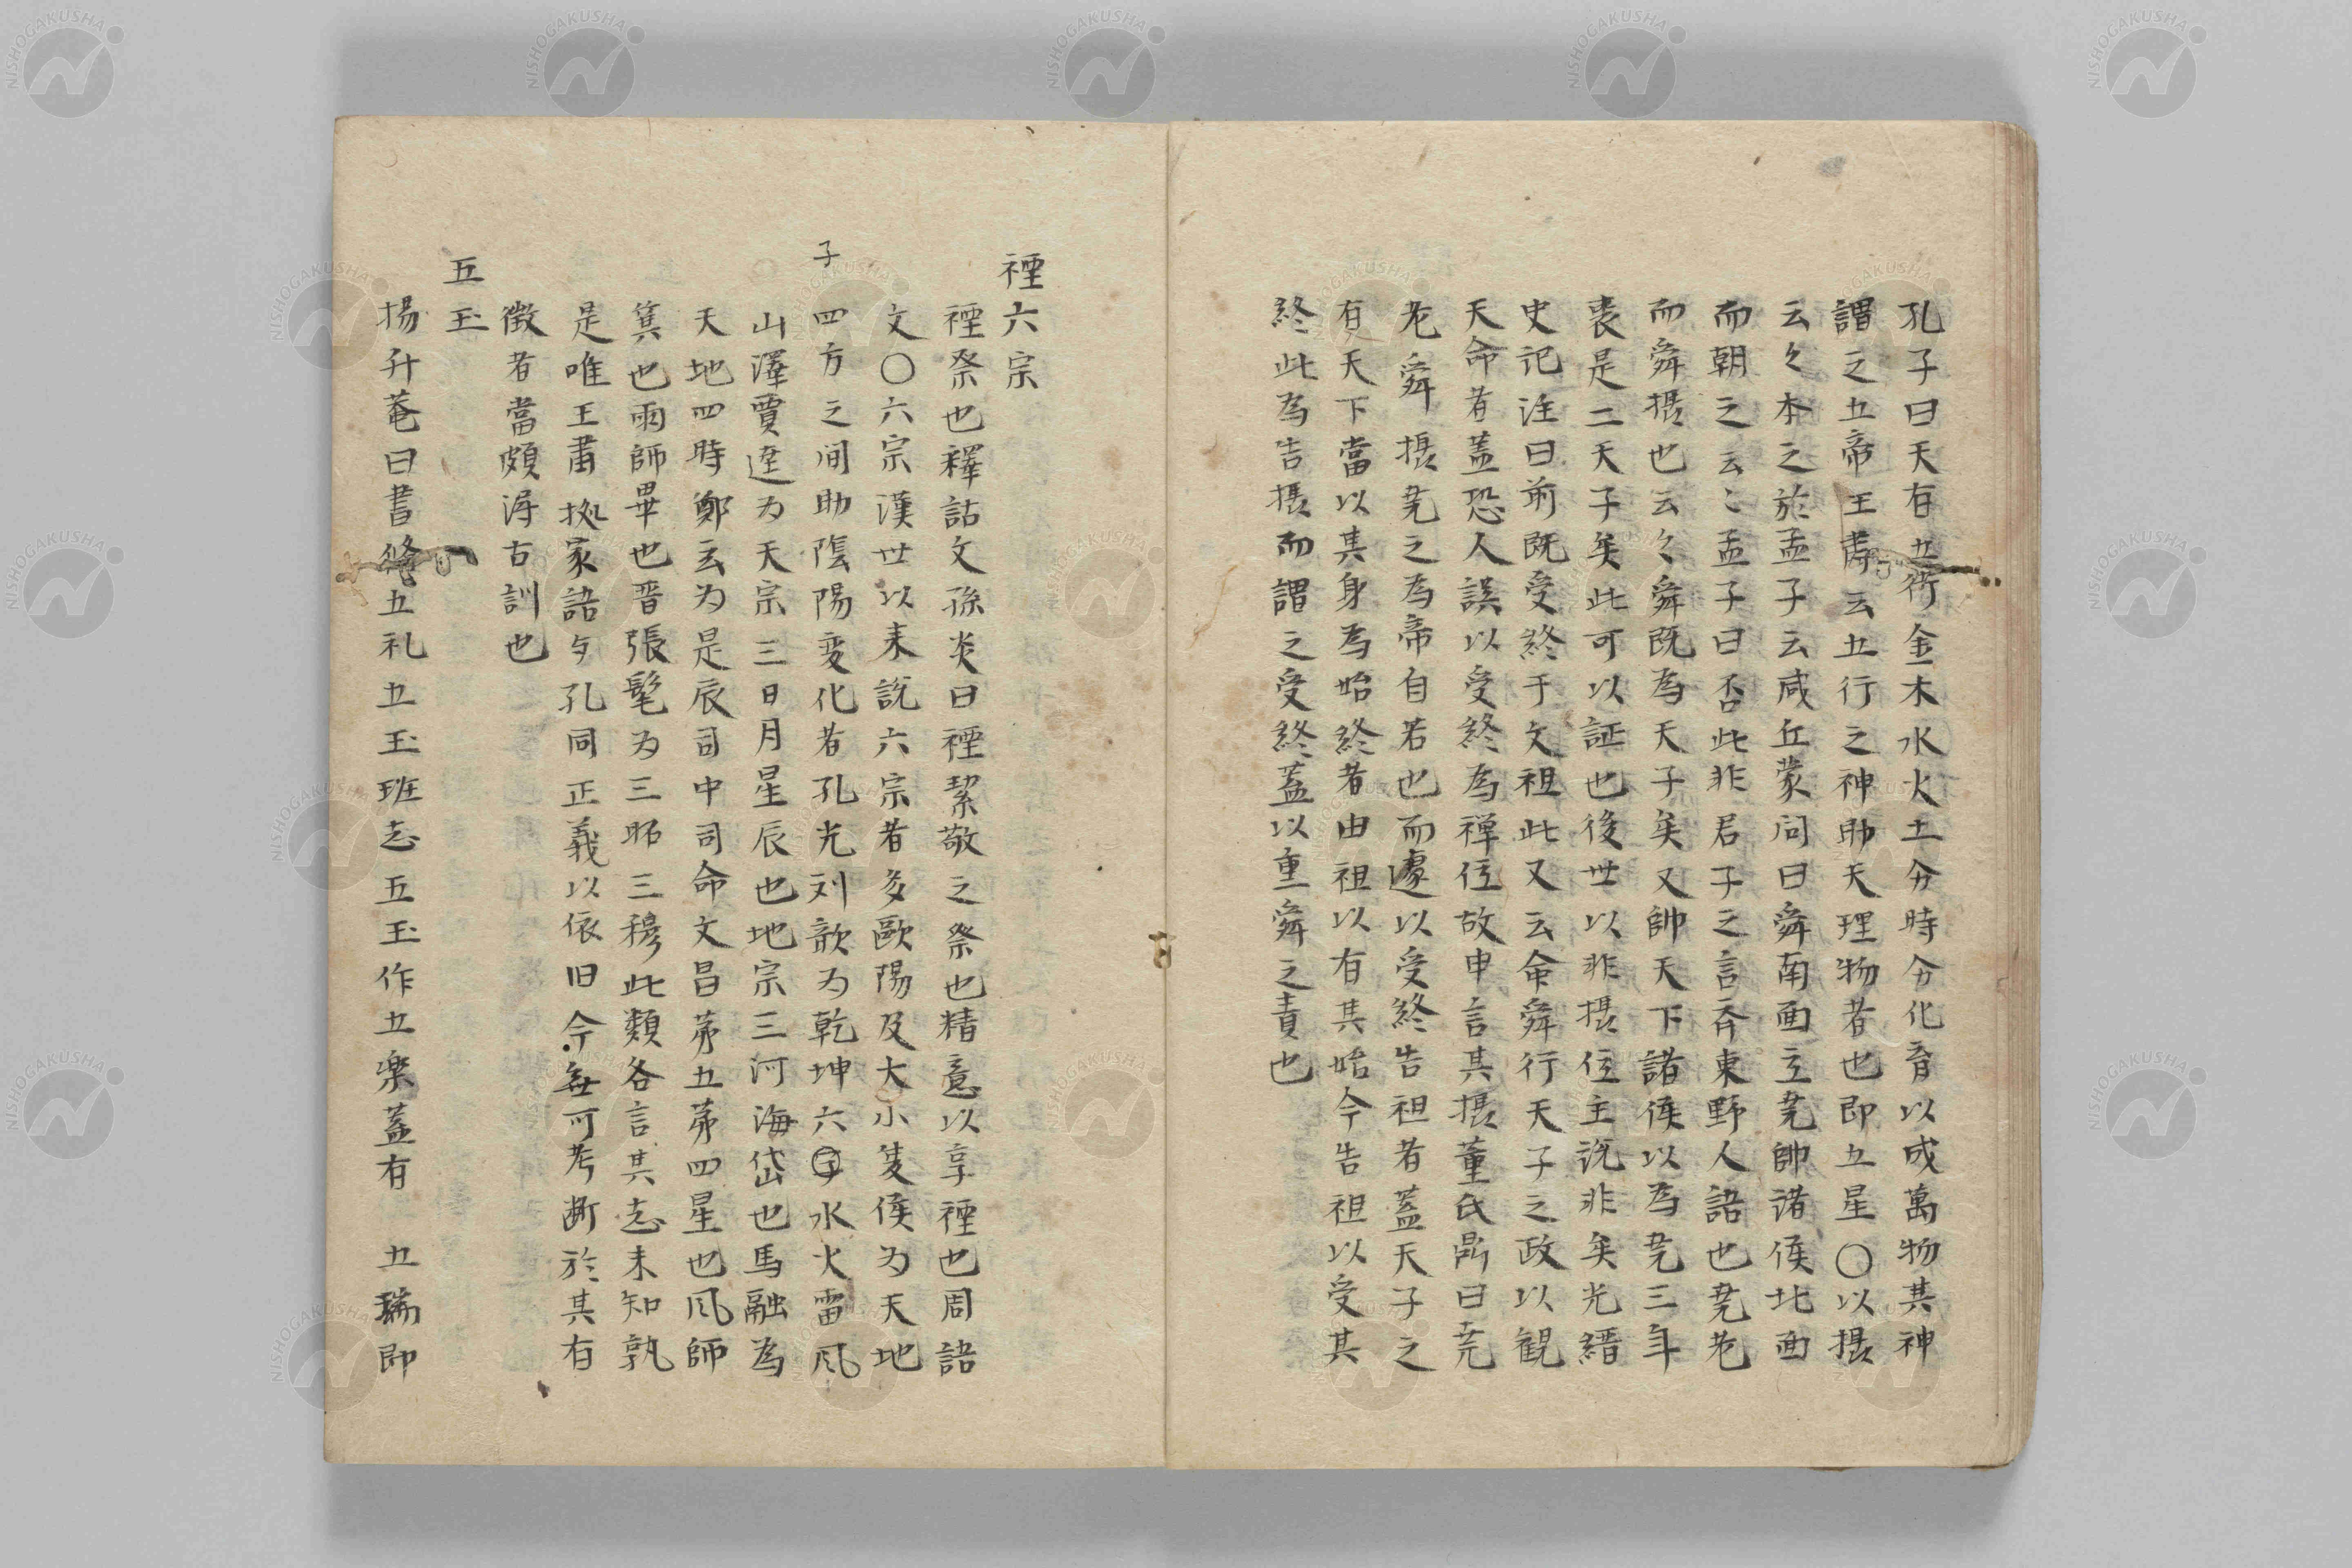 孔子曰天有五行金木水火土分時分化育以成萬物其神
謂之五帝王肅云五行之神助天理物者也即五星〇以攝
云々本之於孟子云咸丘蒙问曰舜南面立尭帥诸侯北面
而朝之云〻孟子曰否此非君子之言斉東野人語也尭老
而舜攝也云々舜既為天子矣又帥天下諸侯以為尭三年
喪是二天子矣此可以証也後世以非攝位主説非矣光縉
史记注曰前既受終于文祖此又云命舜行天子之政以観
天命者蓋恐人誤以受終為禅位故申言其攝董氏鼎曰尭
老舜攝尭之為帝自若也而遽以受終告祖者蓋天子之
有天下當以其身為始終者由祖以有其始今告祖以受其
終此為告攝而謂之受終蓋以重舜之責也
禋六宗
禋祭也釋詁文孫炎曰禋絜敬之祭也精意以享禋也周語
文〇六宗漢世以来説六宗者多歐陽及大小夏侯为天地
四方之间助陰陽変化者孔光刘歆为乾坤六子水火雷风
子
山澤賈逵为天宗三日月星辰也地宗三河海岱也馬融為
天地四時鄭云为是辰司中司命文昌苐五苐四星也风師
箕也雨師畢也晋張髦为三昭三穆此類各言其志未知孰
是唯王肅拠家語与孔同正義以依旧今無可考断於其有
徴者當頗得古訓也
五玉
揚升菴曰書脩五礼五玉班志五玉作五楽蓋有 五瑞即